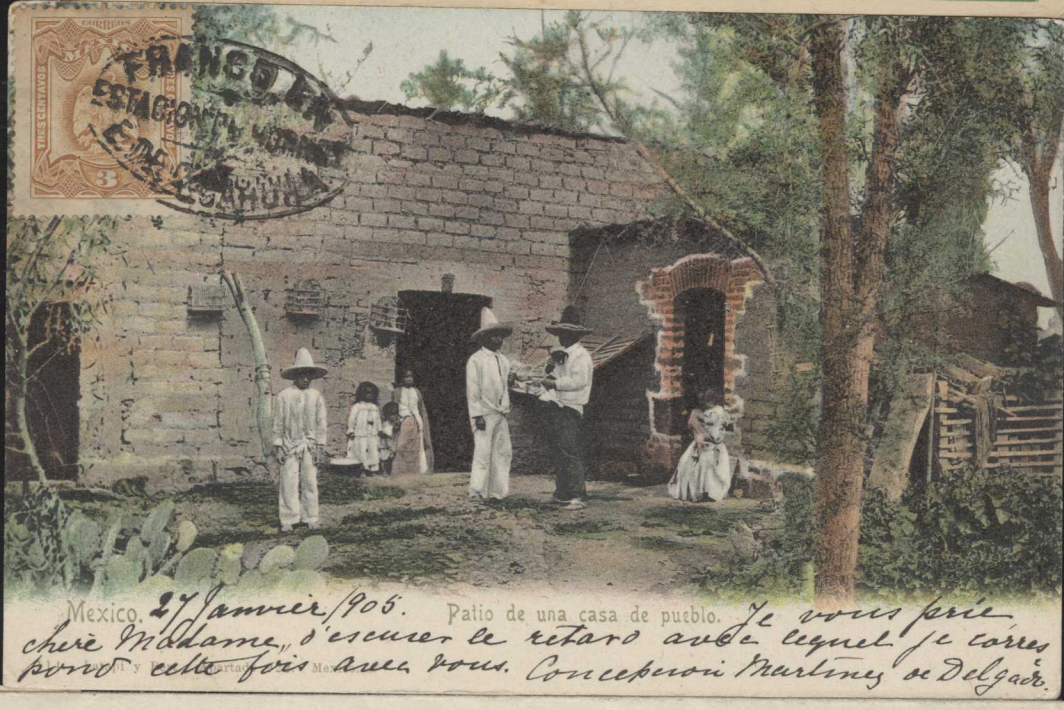 CORREOS
TRES CENTAVOS
3
FRANCO EN
ESTACION
E. DE
Mexico. 27 Janvier/905. Patio de una casa de pueblo. Je vous prie
cherè Madame, d'escuser le retard avec lequel je corres
pond cette fois avec vous. Concepcion Martinez de Delgado.
y Mex